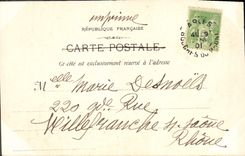 imprimé
RÉPUBLIQUE FRANÇAISE
CARTE POSTALE
Ce côté est exclusivement réservé à l'adresse
Melle Marie Desnoëls
220 gde Rue
Villefranche s/ Saône
Rhône